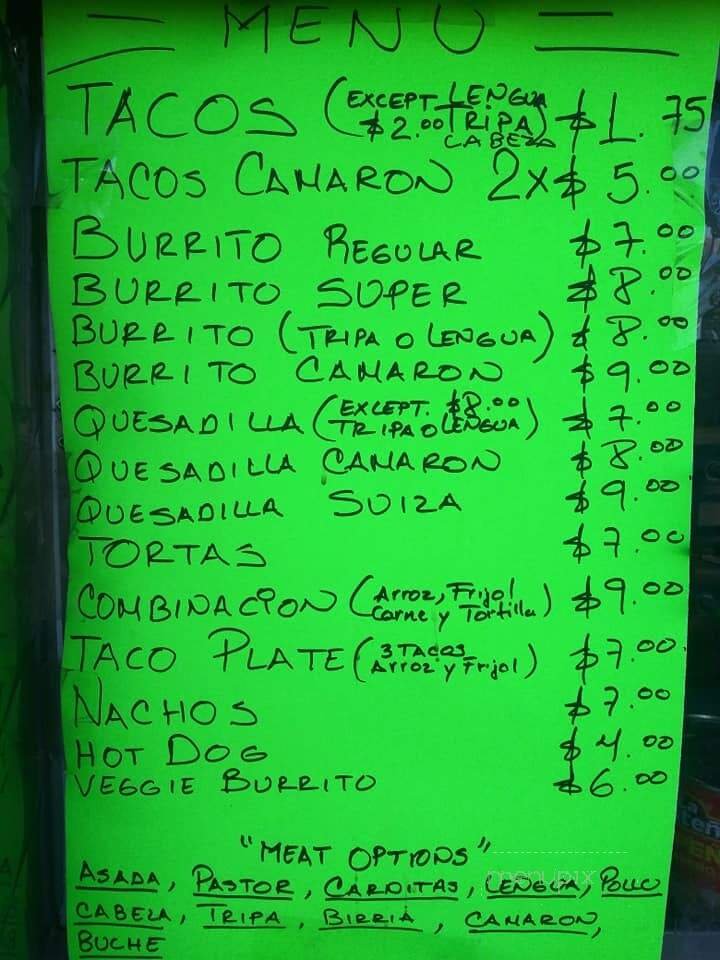 MENU
TACOS (EXCEPT LENGUA $2.00 TRIPA CABEZA) $1.75
TACOS CAMARON 2X$5.00
BURRITO REGULAR $7.00
BURRITO SUPER $8.00
BURRITO (TRIPA O LENGUA) $8.00
BURRITO CAMARON $9.00
QUESADILLA (EXCEPT. $8.00 TRIPA O LENGUA) $7.00
QUESADILLA CAMARON $8.00
QUESADILLA SUIZA $9.00
TORTAS $7.00
COMBINACION (Arroz, Frijol Carne y Tortilla) $9.00
TACO PLATE (3 TACOS Arroz y Frijol) $7.00
NACHOS $7.00
HOT DOG $4.00
VEGGIE BURRITO $6.00
"MEAT OPTIONS"
menupix
ASADA, PASTOR, CARNITAS, LENGUA, POLLO
CABEZA, TRIPA, BIRRIA, CAMARON,
BUCHE